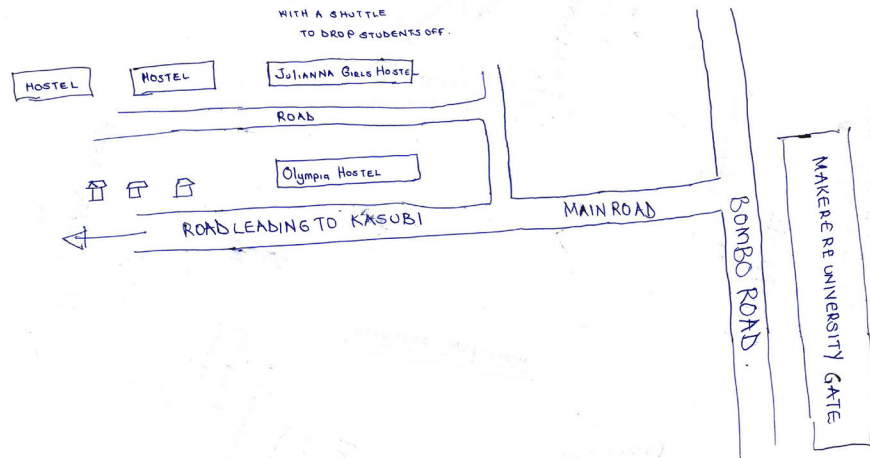 WITH A SHUTTLE
TO DROP STUDENTS OFF.
HOSTEL
HOSTEL
JULIANNA GIRLS HOSTEL
ROAD
Olympia HOSTEL
ROAD LEADING TO KASUBI
MAIN ROAD
BOMBO ROAD.
MAKERERE UNIVERSITY GATE